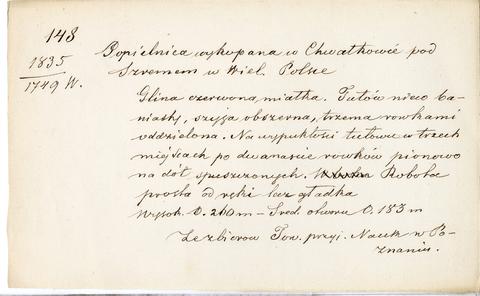 148
1835
1749 W.
Popielnica wykopana w Chwałkowie pod
Szremem w Wiel. Polsce
Glina czerwona, miałka. Tułów nieco ba-
niasty, szyja obszerna, trzema rowkami
oddzielona. Na wypukłości tułowa w trzech
miejscach po dwanaście rowków pionowo
na dół spuszczonych. Robota
prosta od ręki lecz gładka
Wysok. 0.260 m – Śred. otworu 0.183 m
Ze zbiorów Tow. przyj. Nauk w Po-
znaniu.